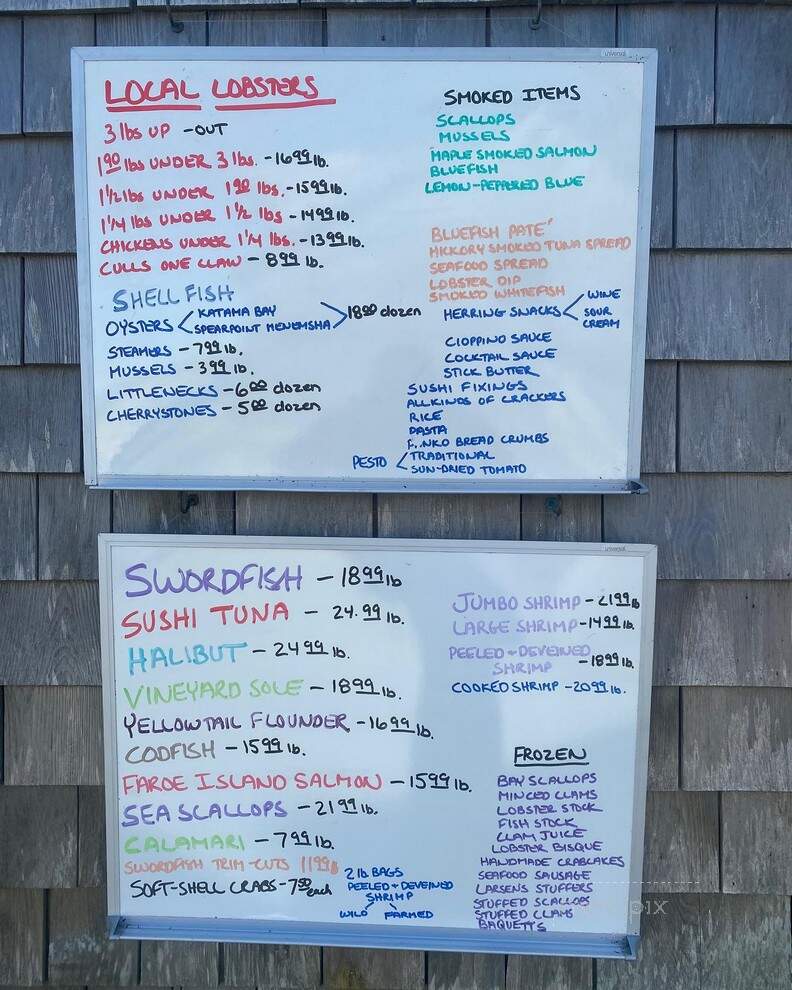 universal
LOCAL LOBSTERS
3 lbs UP - OUT
1 90 lbs UNDER 3 lbs. - 16 99 lb.
1 1/2 lbs UNDER 1 90 lbs. - 15 99 lb.
1 1/4 lbs UNDER 1 1/2 lbs - 14 99 lb.
CHICKENS UNDER 1 1/4 lbs. - 13 99 lb.
CULLS ONE CLAW - 8 99 lb.
SHELL FISH
OYSTERS < KATAMA BAY
SPEARPOINT MENEMSHA > 18 00 dozen
STEAMERS - 7 99 lb.
MUSSELS - 3 99 lb.
LITTLENECKS - 6 00 dozen
CHERRYSTONES - 5 00 dozen
SMOKED ITEMS
SCALLOPS
MUSSELS
MAPLE SMOKED SALMON
BLUEFISH
LEMON-PEPPERED BLUE
BLUEFISH PATE'
HICKORY SMOKED TUNA SPREAD
SEAFOOD SPREAD
LOBSTER DIP
SMOKED WHITEFISH
HERRING SNACKS < WINE
SOUR
CREAM
CIOPPINO SAUCE
COCKTAIL SAUCE
STICK BUTTER
SUSHI FIXINGS
ALL KINDS OF CRACKERS
RICE
PASTA
BREAD CRUMBS
PESTO < TRADITIONAL
SUN-DRIED TOMATO
universal
SWORDFISH - 18 99 lb
SUSHI TUNA - 24.99 lb.
HALIBUT - 24 99 lb.
VINEYARD SOLE - 18 99 lb.
YELLOWTAIL FLOUNDER - 16 99 lb.
CODFISH - 15 99 lb.
FAROE ISLAND SALMON - 15 99 lb.
SEA SCALLOPS - 21 99 lb.
CALAMARI - 7 99 lb.
SWORDFISH TRIM-CUTS 11 99 lb
SOFT-SHELL CRABS - 7 50 each
2 lb BAGS
PEELED + DEVEINED
SHRIMP
WILD FARMED
JUMBO SHRIMP - 21 99 lb
LARGE SHRIMP - 14 99 lb.
PEELED + DEVEINED
SHRIMP - 18 99 lb.
COOKED SHRIMP - 20 99 lb.
FROZEN
BAY SCALLOPS
MINCED CLAMS
LOBSTER STOCK
FISH STOCK
CLAM JUICE
LOBSTER BISQUE
HANDMADE CRABCAKES
SEAFOOD SAUSAGE
LARSENS STUFFERS
STUFFED SCALLOPS
STUFFED CLAMS
BAQUETTS